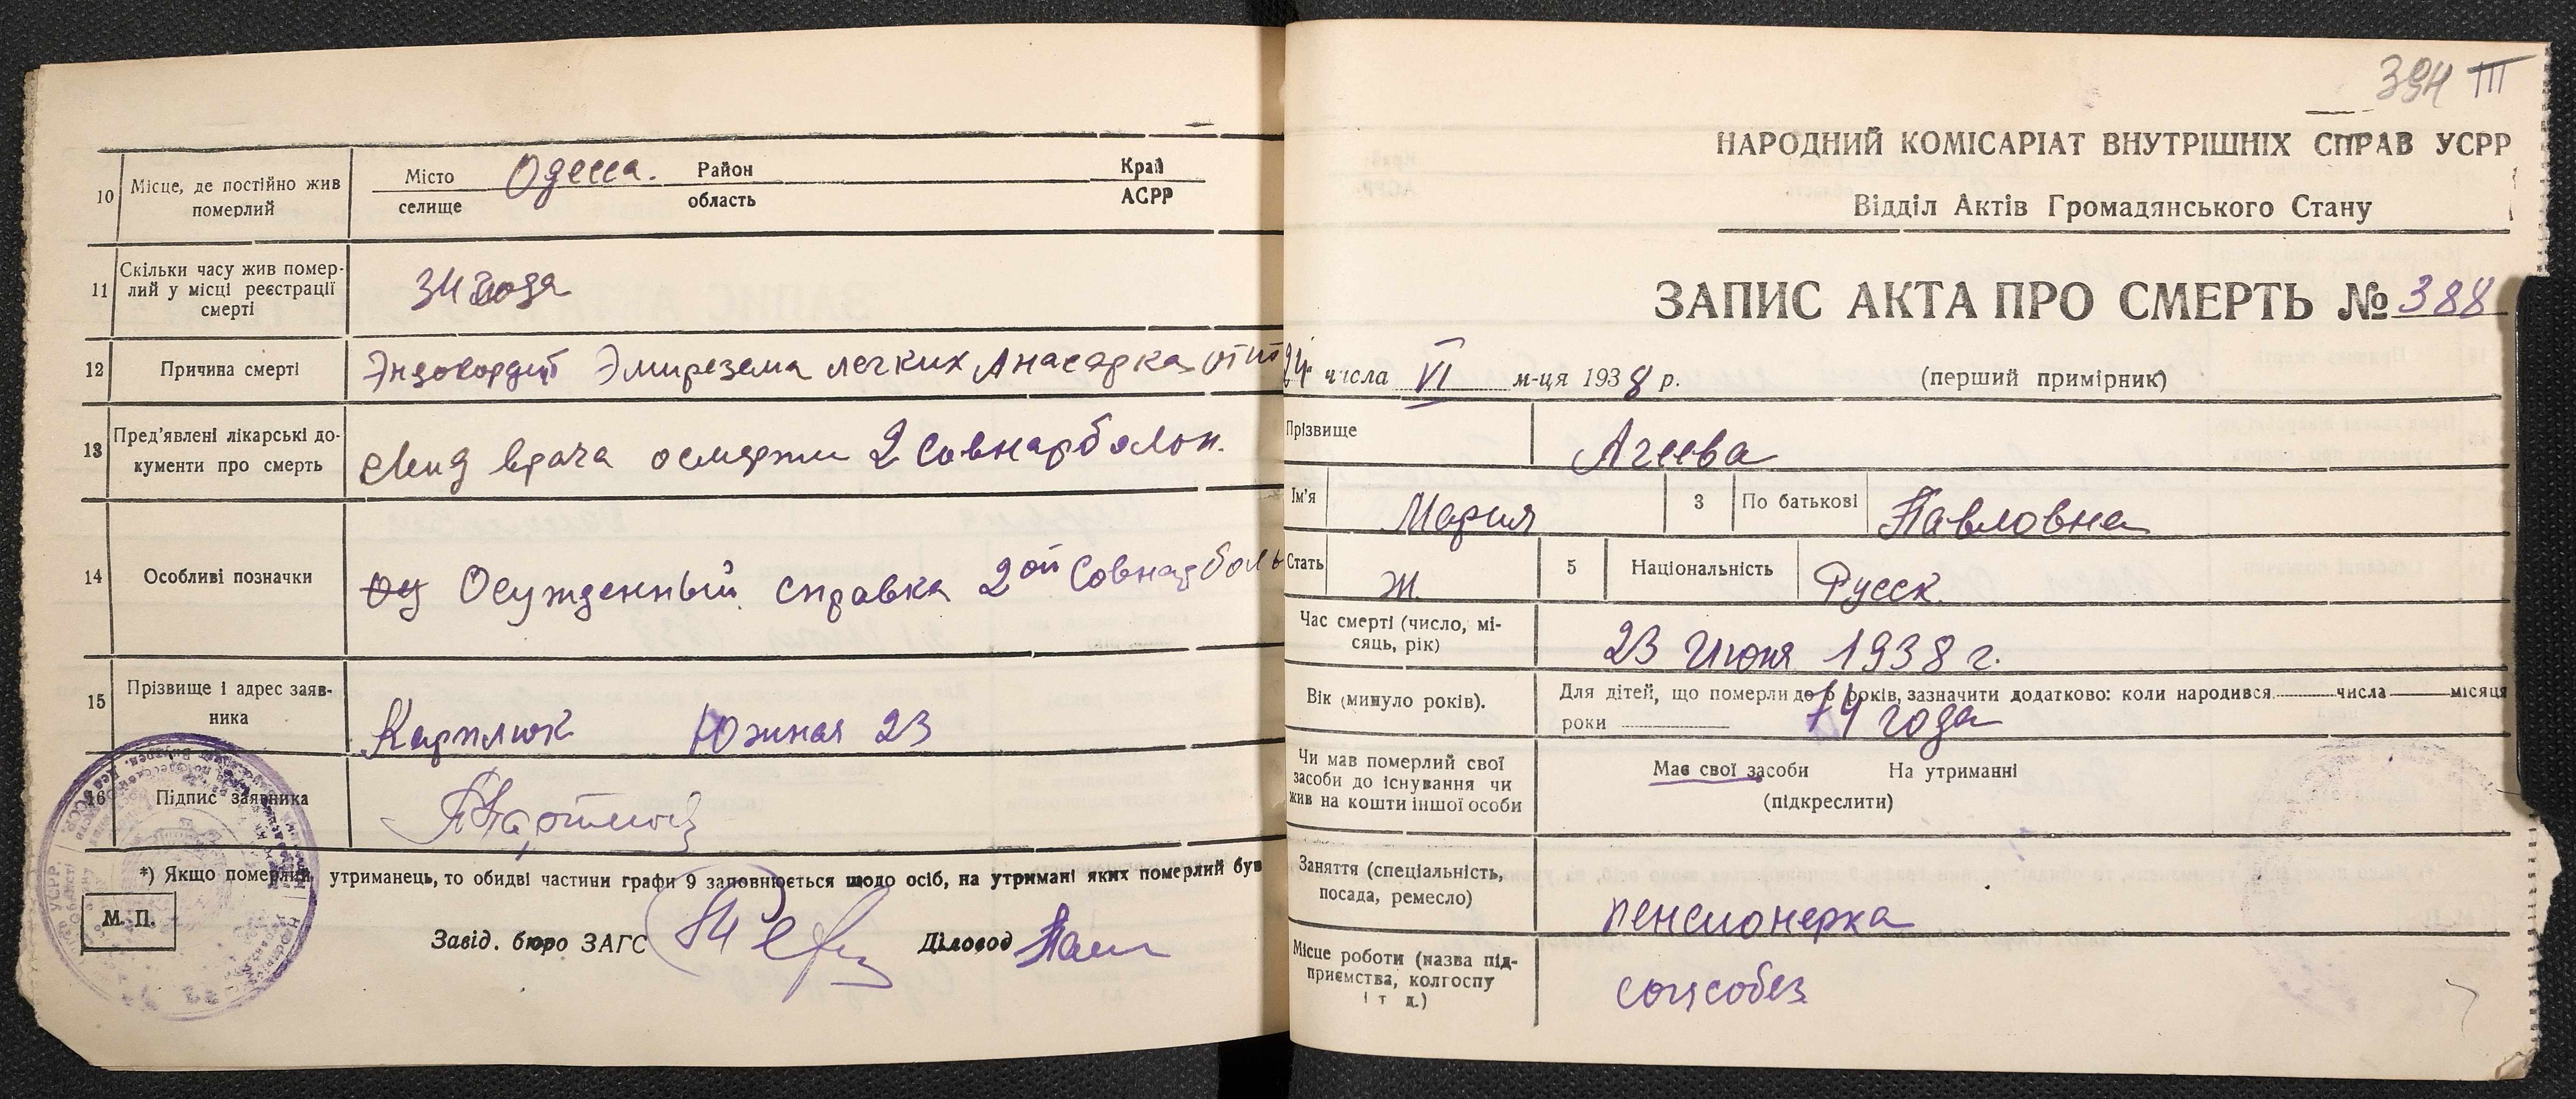 10 Місце, де постійно жив померлий
Місто селище Одесса. Район область Край АСРР
11 Скільки часу жив померлий у місці реєстрації смерті
34 года
12 Причина смерті
Эндокордит Эмирезема легких Анасарка
13 Пред'явлені лікарські документи про смерть
врача 2 Совнарболон.
14 Особливі позначки
Осужденный справка 2ой Совнарболь
15 Прізвище і адрес заявника
Карплюк Южная 23
16 Підпис заявника
*) Якщо померлий утриманець, то обидві частини графи 9 заповнюється щодо осіб, на утримані яких померлий був
М. П.
Завід. бюро ЗАГС Діловод
394 III
НАРОДНИЙ КОМІСАРІАТ ВНУТРІШНІХ СПРАВ УСРР
Відділ Актів Громадянського Стану
ЗАПИС АКТА ПРО СМЕРТЬ № 388
24 числа VI м-ця 1938 р. (перший примірник)
Прізвище Агеева
Ім'я Мария 3 По батькові Павловна
Стать Ж. 5 Національність Русск.
Час смерті (число, місяць, рік) 23 Июня 1938 г.
Вік (минуло років).
Для дітей, що померли до 5 років, зазначити додатково: коли народився числа місяця
роки 74 года
Чи мав померлий свої засоби до існування чи жив на кошти іншої особи
Має свої засоби На утриманні
(підкреслити)
Заняття (спеціальність, посада, ремесло)
пенсионерка
Місце роботи (назва підприємства, колгоспу і т д.)
соцсобез